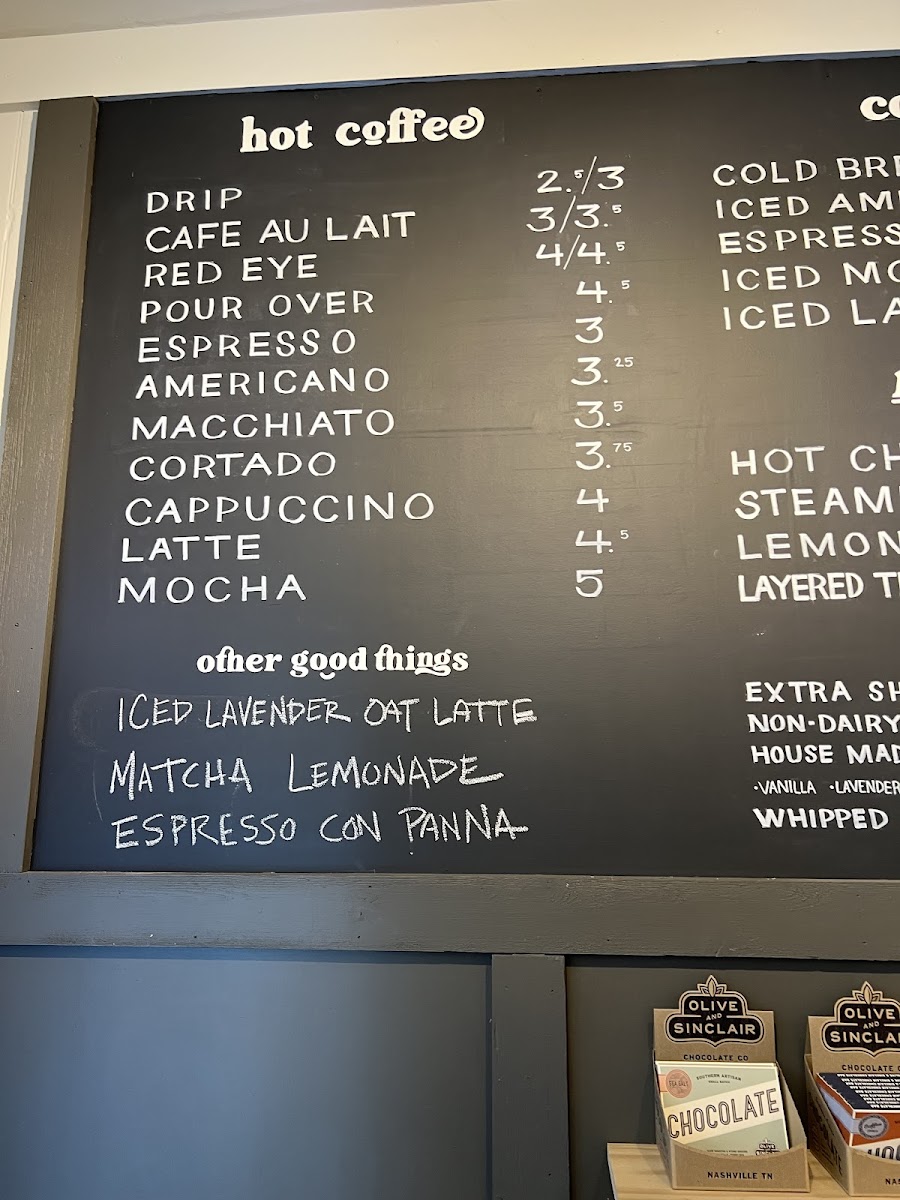 hot coffee
DRIP 2.5/3
CAFE AU LAIT 3/3.5
RED EYE 4/4.5
POUR OVER 4.5
ESPRESSO 3
AMERICANO 3.25
MACCHIATO 3.5
CORTADO 3.75
CAPPUCCINO 4
LATTE 4.5
MOCHA 5
other good things
ICED LAVENDER OAT LATTE
MATCHA LEMONADE
ESPRESSO CON PANNA
COLD
ICED
ICED
ICED
HOT
EXTRA
NON-DAIRY
HOUSE
·VANILLA ·LAVENDER
WHIPPED
OLIVE
AND
SINCLAIR
CHOCOLATE CO
SOUTHERN ARTISAN
SEA SALT
CHOCOLATE
NASHVILLE TN
OLIVE
AND
CHOCOLATE